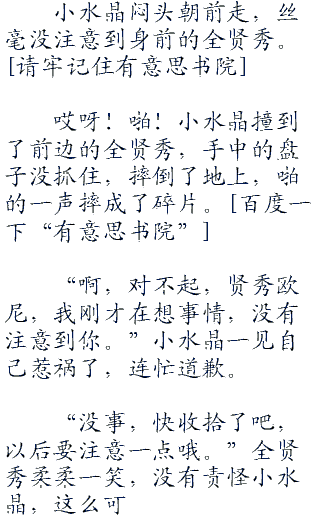 小水晶闷头朝前走，丝
毫没注意到身前的全贤秀。
[请牢记住有意思书院]
哎呀！啪！小水晶撞到
了前边的全贤秀，手中的盘
子没抓住，摔倒了地上，啪
的一声摔成了碎片。[百度一
下“有意思书院”]
“啊，对不起，贤秀欧
尼，我刚才在想事情，没有
注意到你。”小水晶一见自
己惹祸了，连忙道歉。
“没事，快收拾了吧，
以后要注意一点哦。”全贤
秀柔柔一笑，没有责怪小水
晶，这么可